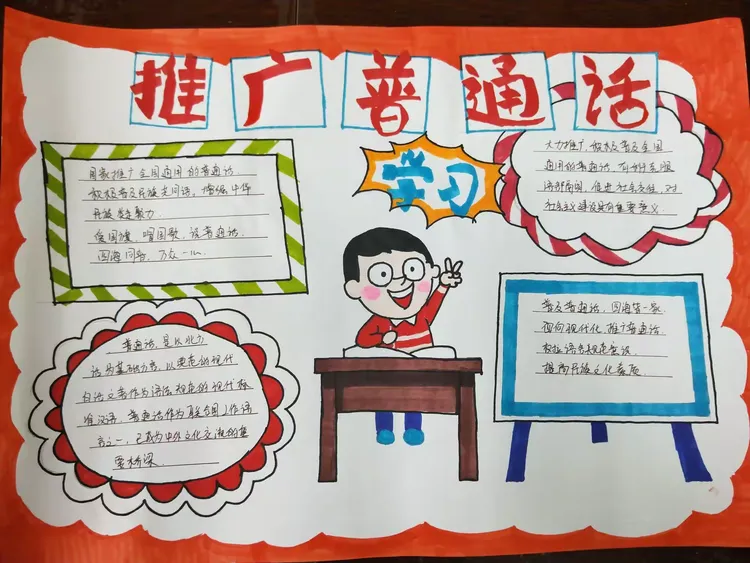 推广普通话
国家推广全国通用的普通话.
积极普及民族共同语，增强中华
民族凝聚力.
爱国旗，唱国歌，说普通话.
四海同音，万众一心.
学习
大力推广、积极普及全国
通用的普通话，有利于克服
语言隔阂，促进社会交往，对
社会主义建设具有重要意义.
普通话，是以北方
话为基础方言，以典范的现代
白话文著作为语法规范的现代标
准汉语，普通话作为联合国工作语
言之一，已成为中外文化交流的重
要桥梁.
普及普通话，四海皆一家.
面向现代化，推广普通话.
树立语言规范意识.
提高民族文化素质